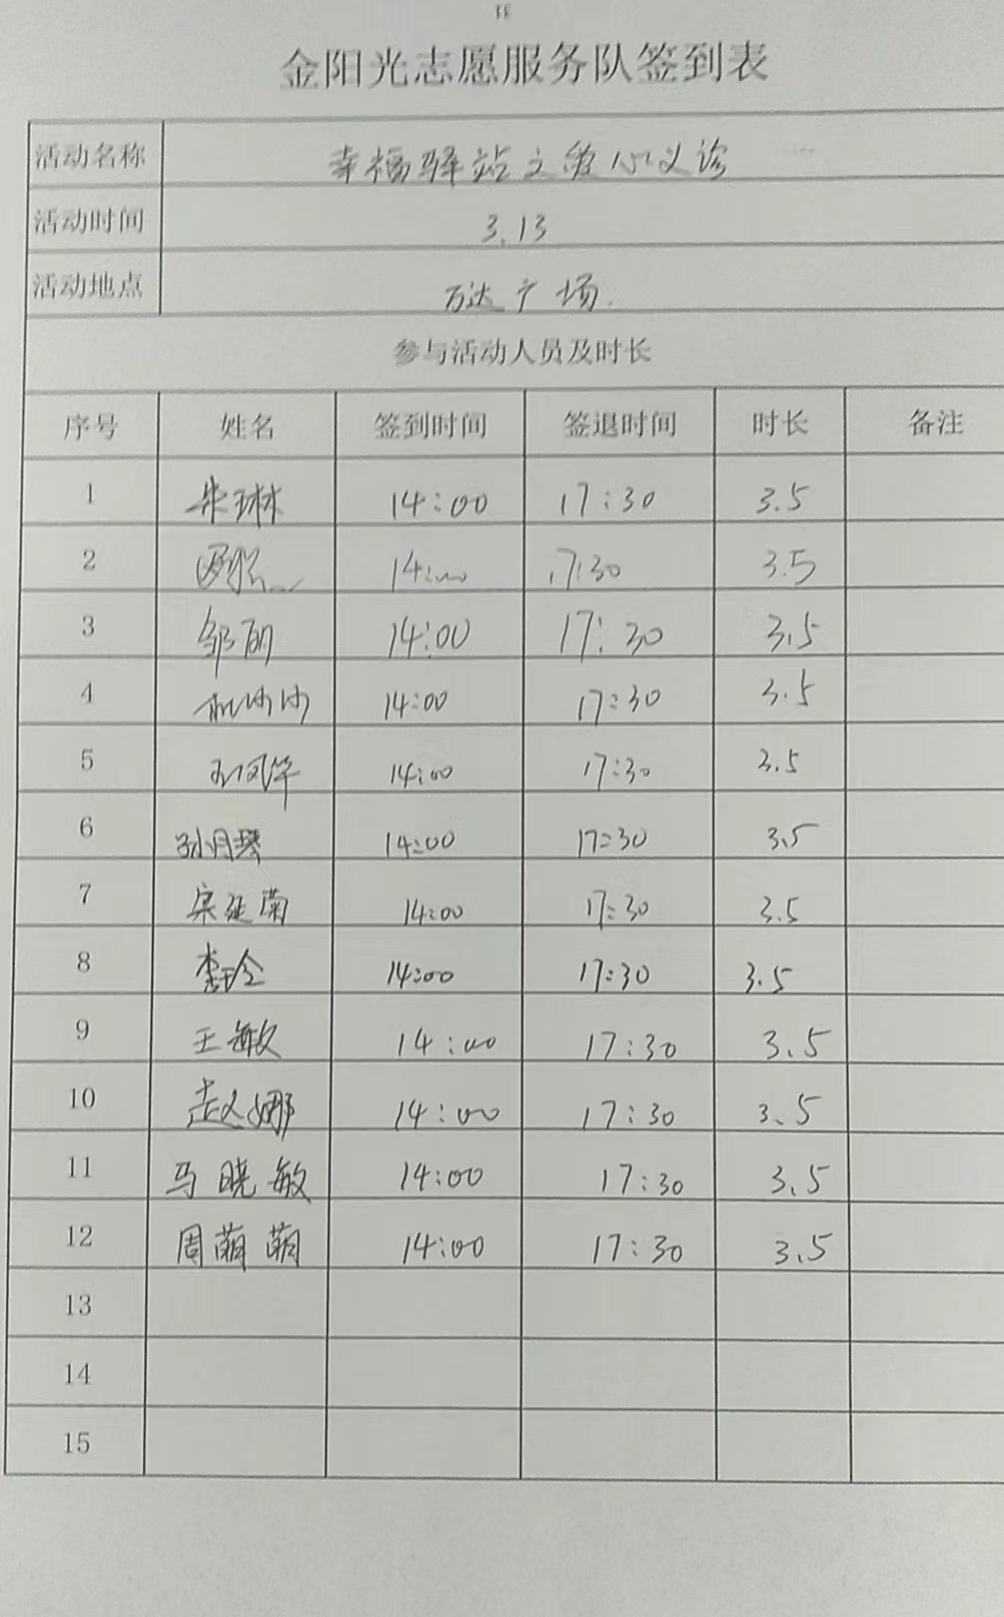 金阳光志愿服务队签到表
活动名称 幸福驿站之爱心义诊
活动时间 3.13
活动地点 万达广场.
参与活动人员及时长
序号 姓名 签到时间 签退时间 时长 备注
1 朱琳 14:00 17:30 3.5
2 14:00 17:30 3.5
3 邹丽 14:00 17:30 3.5
4 14:00 17:30 3.5
5 14:00 17:30 3.5
6 孙月琴 14:00 17:30 3.5
7 宋延菊 14:00 17:30 3.5
8 李玲 14:00 17:30 3.5
9 王敏 14:00 17:30 3.5
10 赵义娜 14:00 17:30 3.5
11 马晓敏 14:00 17:30 3.5
12 周萌萌 14:00 17:30 3.5
13
14
15